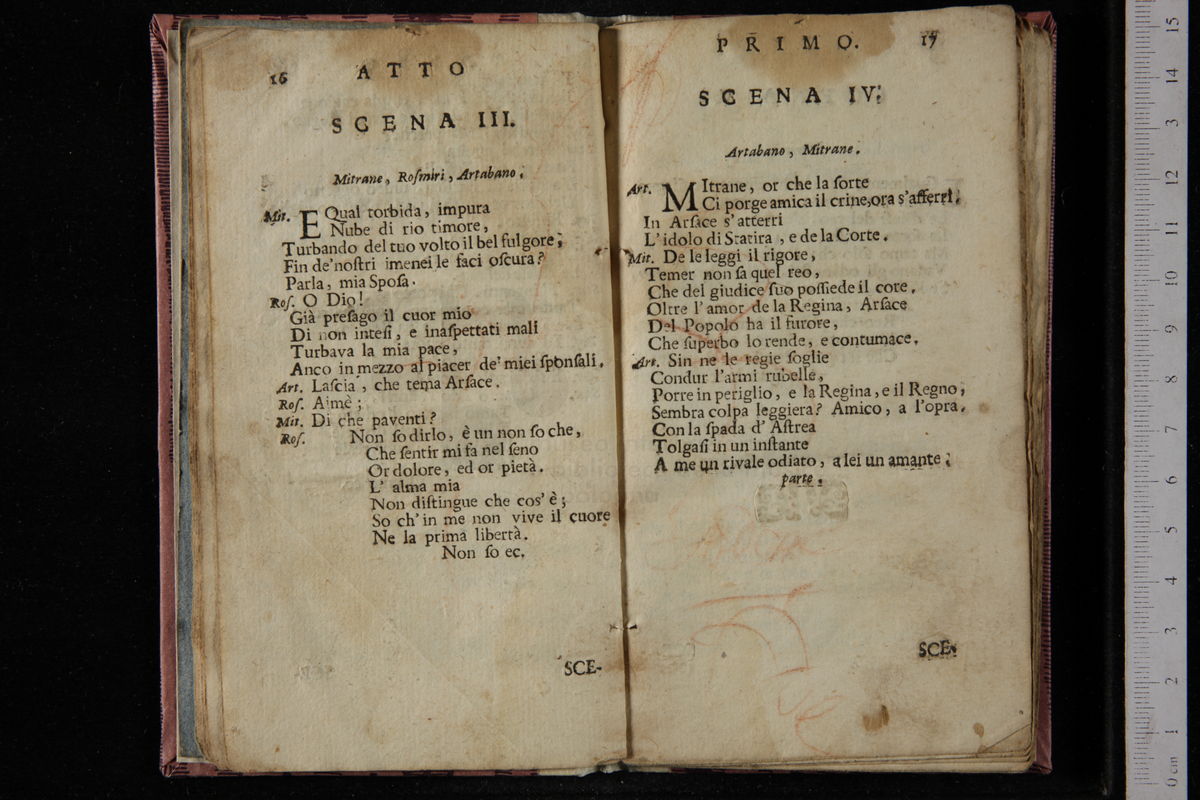 16 ATTO
SCENA III.
Mitrane, Roſmiri, Artabano.
Mit. E Qual torbida, impura
Nube di rio timore,
Turbando del tuo volto il bel fulgore;
Fin de' noſtri imenei le faci oſcura?
Parla, mia Spoſa.
Roſ. O Dio!
Già preſago il cuor mio
Di non inteſi, e inaſpettati mali
Turbava la mia pace,
Anco in mezzo al piacer de' miei ſponſali.
Art. Laſcia, che tema Arſace.
Roſ. Aimè;
Mit. Di che paventi?
Roſ. Non ſo dirlo, è un non ſo che,
Che ſentir mi fa nel ſeno
Or dolore, ed or pietà.
L' alma mia
Non diſtingue che cos' è;
So ch' in me non vive il cuore
Ne la prima libertà.
Non ſo ec.
SCE-
PRIMO. 17
SCENA IV.
Artabano, Mitrane.
Art. MItrane, or che la ſorte
Ci porge amica il crine, ora s'afferri.
In Arſace s' atterri
L' idolo di Statira, e de la Corte.
Mit. De le leggi il rigore,
Temer non ſa quel reo,
Che del giudice ſuo poſſiede il core.
Oltre l' amor de la Regina, Arſace
Del Popolo ha il furore,
Che ſuperbo lo rende, e contumace.
Art. Sin ne le regie ſoglie
Condur l'armi rubelle,
Porre in periglio, e la Regina, e il Regno,
Sembra colpa leggiera? Amico, a l'opra.
Con la ſpada d' Aſtrea
Tolgaſi in un inſtante
A me un rivale odiato, a lei un amante.
parte.
SCE-
15
14
3
12
11
10
9
8
7
6
5
4
3
2
1
0 cm